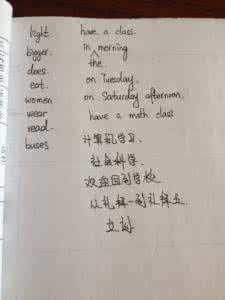 light have a class.
bigger. in morning
does the
eat. on Tuesday.
women on Saturday afternoon.
wear have a math class
read
buses 计算机学习.
社会科学.
欢迎回到学校
从礼拜一到礼拜五